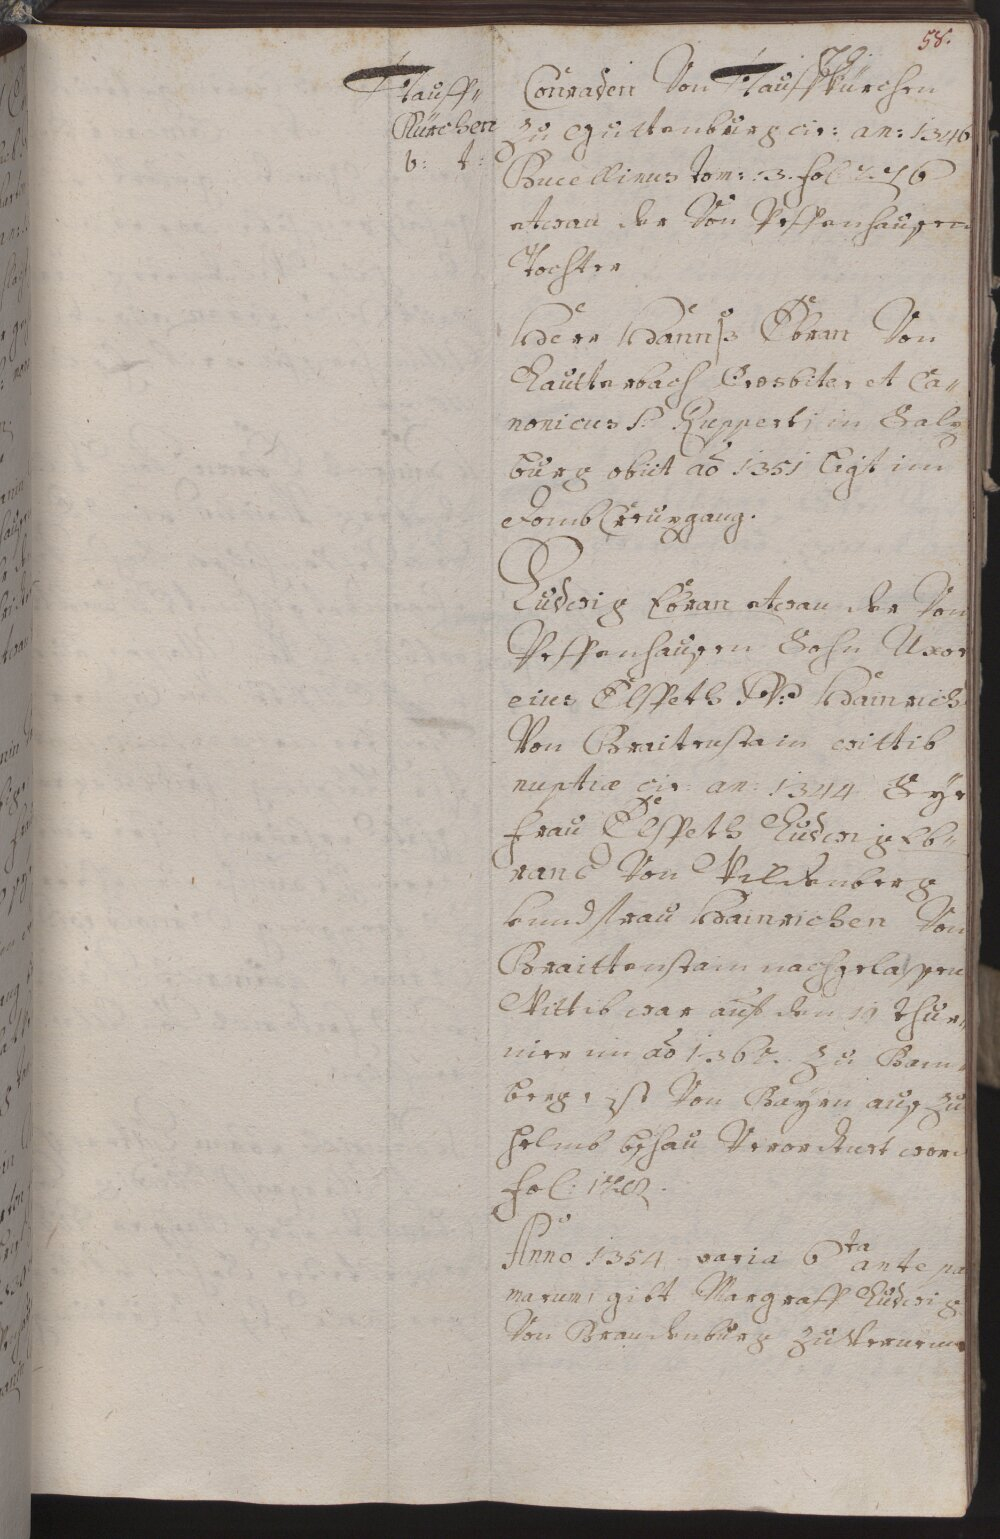 58.
Tauff-
Kürchen
v: t:
Conraden Von Tauffkürchen
zu Guttenburg cir: an: 1346
Bucellinus tom: 3. fol: 2. 76
etwan der Von Peffenhausen
Tochter
Herr Hannß Ebran Von
Lautterbach Presbiter et Ca-
nonicus S: Rupperti in Salz
burg obiit ao 1351 ligt im
domb Creuzgang.
Ludwig Ebran etwan der Von
Peffenhausen Sohn Uxor
eius Elspeth Hainrich
Von Braitenstain wittib
nuptiæ cir: an: 1344
frau Elspeth Ludwig Eb-
rans Von Wildenberg
haußfrau Hainrichen Von
Braittenstain nachgelassen
Wittib war auf den 11 thur-
nier im ao 1362. zu Bam
berg, ist Von Bayrn aus zu
helmb bschau Verordnet word
fol:
Anno 1354 varia 6ta ante pa
marum, gibt Margraff Ludwig
Von Brandenburg zuvernem